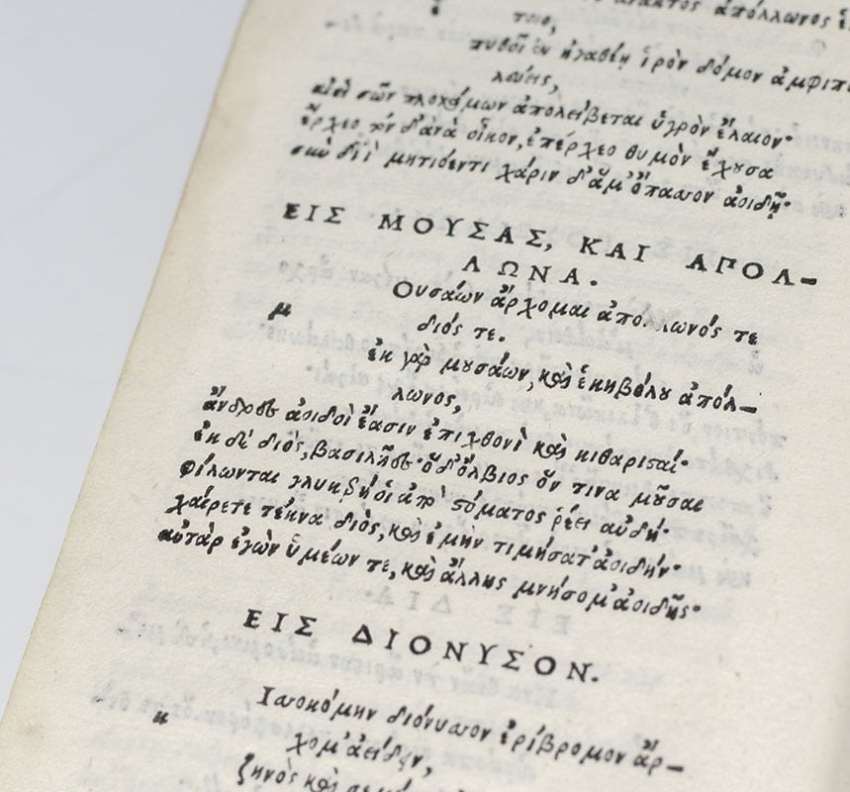 ἄνακτος ἀπόλλωνος
πυθοῖ ἐν ἠγαθέῃ ἱερὸν δόμον ἀμφιπο
λεύεις,
αἰεὶ σῶν πλοκάμων ἀπολείβεται ὑγρὸν ἔλαιον·
ἔρχεο τόνδ' ἀνὰ οἶκον, ἐπέρχεο θυμὸν ἔχουσα
σὺν διὶ μητιόεντι χάριν δ' ἅμ' ὄπασσον ἀοιδῇ·
ΕΙΣ ΜΟΥΣΑΣ, ΚΑΙ ΑΠΟΛ-
ΛΩΝΑ.
μ Ουσάων ἄρχομαι ἀπόλλωνός τε
διός τε.
ἐκ γὰρ μουσάων, καὶ ἑκηβόλου ἀπόλ-
λωνος,
ἄνδρες ἀοιδοὶ ἔασιν ἐπιχθονὶ καὶ κιθαρισταί·
ἐκ δὲ διός, βασιλῆες· ὅ δ' ὄλβιος ὅν τινα μοῦσαι
φίλωνται γλυκερή οἱ ἀπὸ στόματος ῥέει αὐδή·
χαίρετε τέκνα διὸς, καὶ ἐμὴν τιμήσατ' ἀοιδήν·
αὐτὰρ ἐγὼν ὑμέων τε, καὶ ἄλλης μνήσομ' ἀοιδῆς·
ΕΙΣ ΔΙΟΝΥΣΟΝ.
κ Ισσοκόμην διόνυσον ἐρίβρομον ἄρ-
χομ' ἀείδειν,
ζηνὸς καὶ